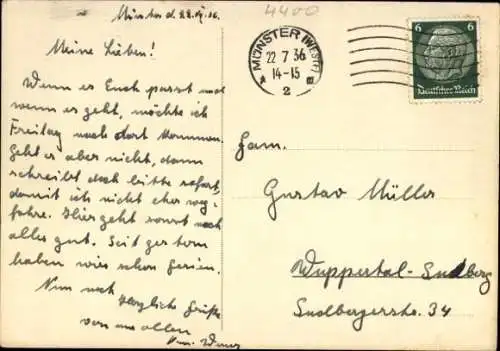 Münster d. 22.7.36.
Meine Lieben!
Wenn es Euch passt und
wenn es geht, möchte ich
Freitag nach dort kommen.
Geht es aber nicht, dann
schreibt doch bitte sofort,
damit ich nicht eher weg-
fahre. Hier geht sonst noch
alles gut. Seit gestern
haben wir schon Ferien.
Nun noch
herzliche Grüße
von uns allen
4400
MÜNSTER (WESTF)
22.7.36
14-15
2
6 6
Deutsches Reich
Fam.
Gustav Müller
Wuppertal-Sudberg
Sudbergerstr. 34